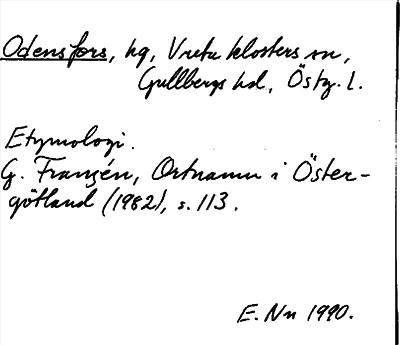 Odensfors, hg, Vreta klosters sn,
Gullbergs hd, Östg. l.
Etymologi.
G. Franzén, Ortnamn i Öster-
götland (1982), s. 113.
E. Nn 1990.